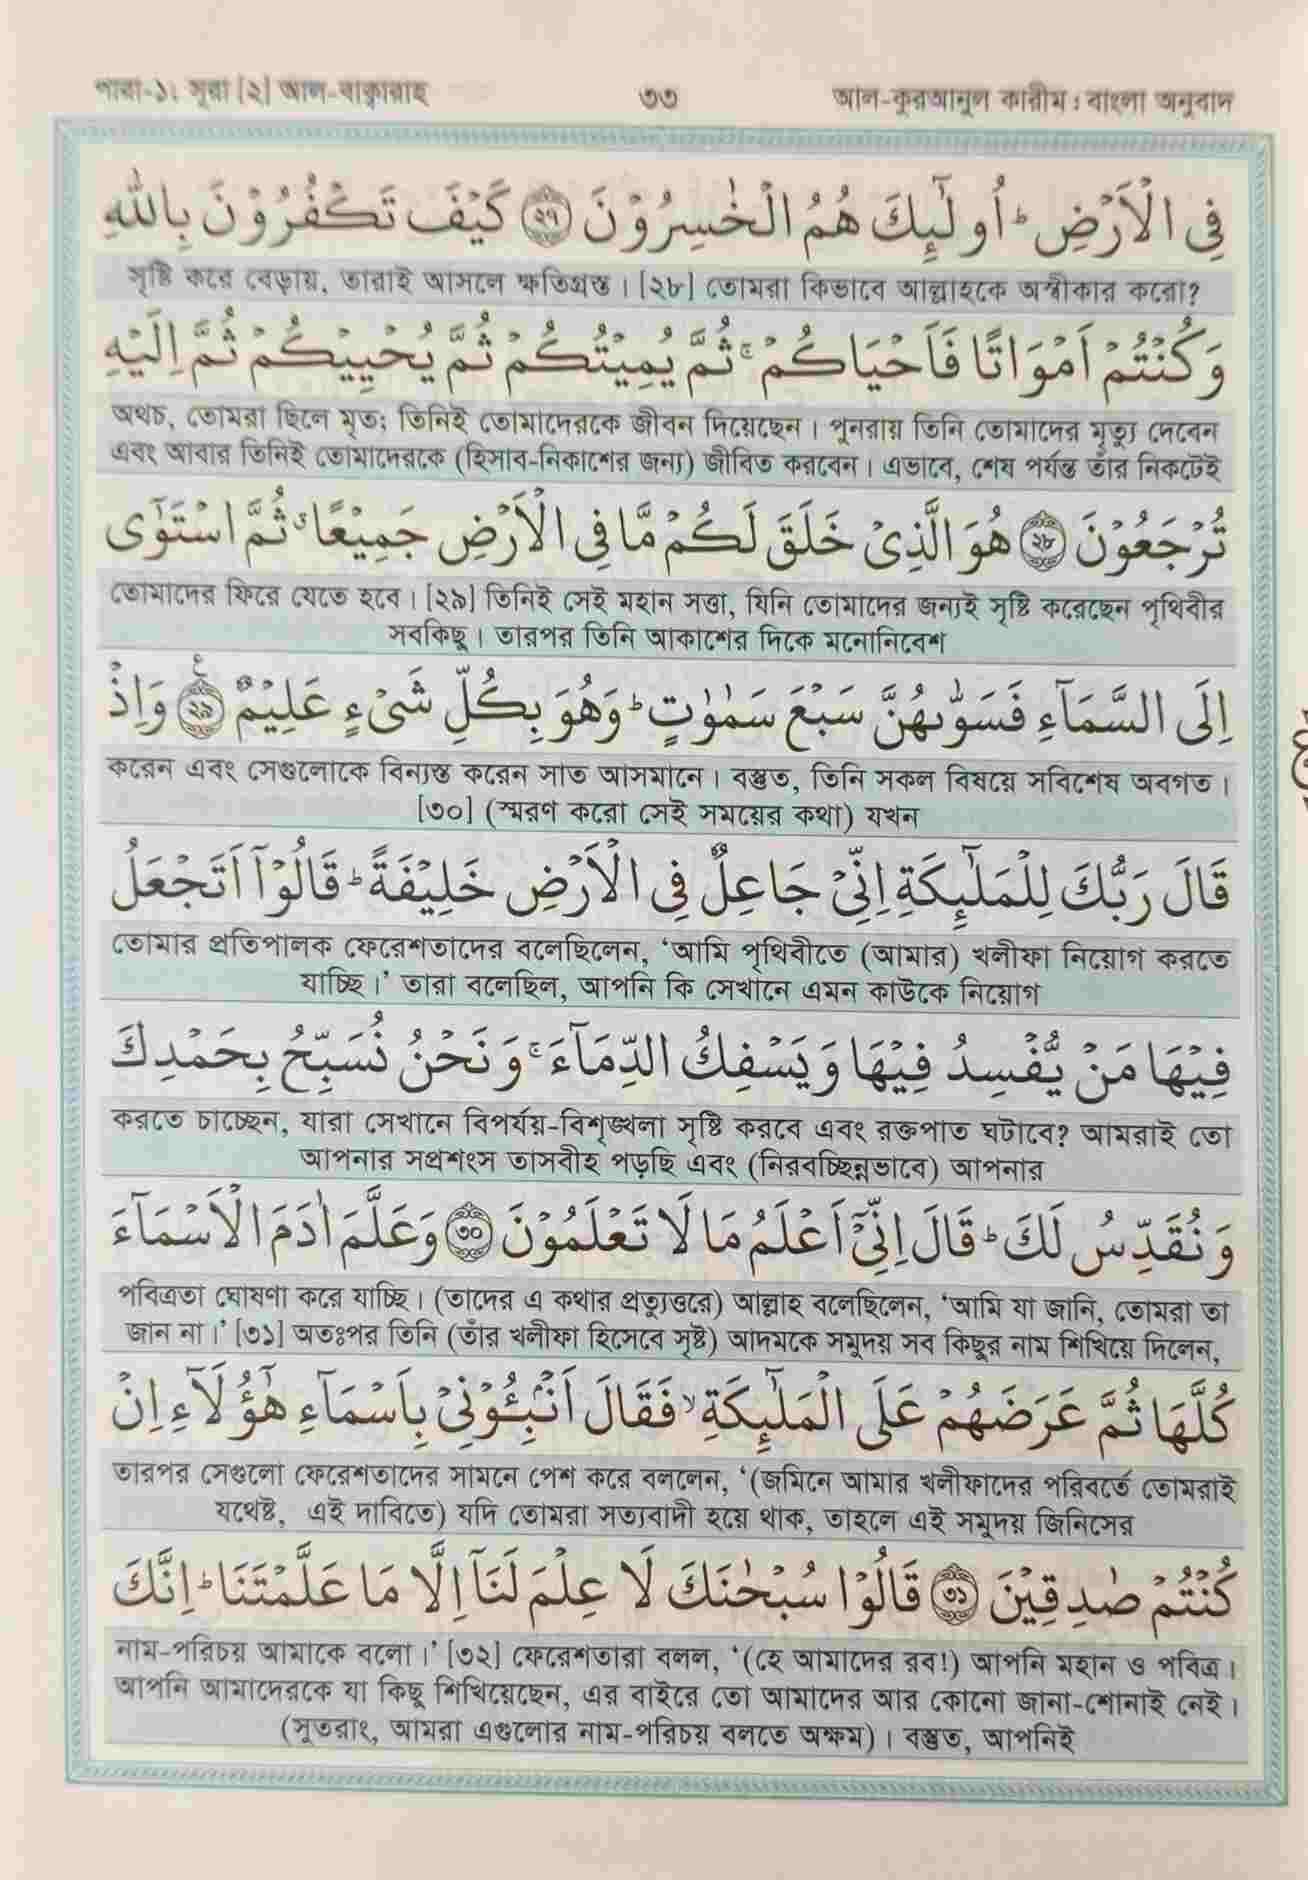 পারা-১। সূরা [২] আল-বাক্বারাহ ৩৩ আল-কুরআনুল কারীম : বাংলা অনুবাদ
فِي الْاَرْضِ ؕ اُولٰٓئِكَ هُمُ الْخٰسِرُوْنَ ﴿٢٧﴾ كَيْفَ تَكْفُرُوْنَ بِاللّٰهِ
সৃষ্টি করে বেড়ায়, তারাই আসলে ক্ষতিগ্রস্ত। [২৮] তোমরা কিভাবে আল্লাহকে অস্বীকার করো?
وَكُنْتُمْ اَمْوَاتًا فَاَحْيَاكُمْ ۚ ثُمَّ يُمِيْتُكُمْ ثُمَّ يُحْيِيْكُمْ ثُمَّ اِلَيْهِ
অথচ, তোমরা ছিলে মৃত; তিনিই তোমাদেরকে জীবন দিয়েছেন। পুনরায় তিনি তোমাদের মৃত্যু দেবেন
এবং আবার তিনিই তোমাদেরকে (হিসাব-নিকাশের জন্য) জীবিত করবেন। এভাবে, শেষ পর্যন্ত তাঁর নিকটেই
تُرْجَعُوْنَ ﴿٢٨﴾ هُوَ الَّذِيْ خَلَقَ لَكُمْ مَّا فِي الْاَرْضِ جَمِيْعًا ۗ ثُمَّ اسْتَوٰٓى
তোমাদের ফিরে যেতে হবে। [২৯] তিনিই সেই মহান সত্তা, যিনি তোমাদের জন্যই সৃষ্টি করেছেন পৃথিবীর
সবকিছু। তারপর তিনি আকাশের দিকে মনোনিবেশ
اِلَى السَّمَآءِ فَسَوّٰىهُنَّ سَبْعَ سَمٰوٰتٍ ؕ وَهُوَ بِكُلِّ شَيْءٍ عَلِيْمٌ ﴿٢٩﴾ وَاِذْ
করেন এবং সেগুলোকে বিন্যস্ত করেন সাত আসমানে। বস্তুত, তিনি সকল বিষয়ে সবিশেষ অবগত।
[৩০] (স্মরণ করো সেই সময়ের কথা) যখন
قَالَ رَبُّكَ لِلْمَلٰٓئِكَةِ اِنِّيْ جَاعِلٌ فِي الْاَرْضِ خَلِيْفَةً ؕ قَالُوْٓا اَتَجْعَلُ
তোমার প্রতিপালক ফেরেশতাদের বলেছিলেন, ‘আমি পৃথিবীতে (আমার) খলীফা নিয়োগ করতে
যাচ্ছি।’ তারা বলেছিল, আপনি কি সেখানে এমন কাউকে নিয়োগ
فِيْهَا مَنْ يُّفْسِدُ فِيْهَا وَيَسْفِكُ الدِّمَآءَ ۚ وَنَحْنُ نُسَبِّحُ بِحَمْدِكَ
করতে চাচ্ছেন, যারা সেখানে বিপর্যয়-বিশৃঙ্খলা সৃষ্টি করবে এবং রক্তপাত ঘটাবে? আমরাই তো
আপনার সপ্রশংস তাসবীহ পড়ছি এবং (নিরবচ্ছিন্নভাবে) আপনার
وَنُقَدِّسُ لَكَ ؕ قَالَ اِنِّيْٓ اَعْلَمُ مَا لَا تَعْلَمُوْنَ ﴿٣٠﴾ وَعَلَّمَ اٰدَمَ الْاَسْمَآءَ
পবিত্রতা ঘোষণা করে যাচ্ছি। (তাদের এ কথার প্রত্যুত্তরে) আল্লাহ বলেছিলেন, ‘আমি যা জানি, তোমরা তা
জান না।’ [৩১] অতঃপর তিনি (তাঁর খলীফা হিসেবে সৃষ্ট) আদমকে সমুদয় সব কিছুর নাম শিখিয়ে দিলেন,
كُلَّهَا ثُمَّ عَرَضَهُمْ عَلَى الْمَلٰٓئِكَةِ ۙ فَقَالَ اَنْۢبِـُٔوْنِيْ بِاَسْمَآءِ هٰٓؤُلَآءِ اِنْ
তারপর সেগুলো ফেরেশতাদের সামনে পেশ করে বললেন, ‘(জমিনে আমার খলীফাদের পরিবর্তে তোমরাই
যথেষ্ট, এই দাবিতে) যদি তোমরা সত্যবাদী হয়ে থাক, তাহলে এই সমুদয় জিনিসের
كُنْتُمْ صٰدِقِيْنَ ﴿٣١﴾ قَالُوْا سُبْحٰنَكَ لَا عِلْمَ لَنَآ اِلَّا مَا عَلَّمْتَنَا ؕ اِنَّكَ
নাম-পরিচয় আমাকে বলো।’ [৩২] ফেরেশতারা বলল, ‘(হে আমাদের রব!) আপনি মহান ও পবিত্র।
আপনি আমাদেরকে যা কিছু শিখিয়েছেন, এর বাইরে তো আমাদের আর কোনো জানা-শোনাই নেই।
(সুতরাং, আমরা এগুলোর নাম-পরিচয় বলতে অক্ষম)। বস্তুত, আপনিই